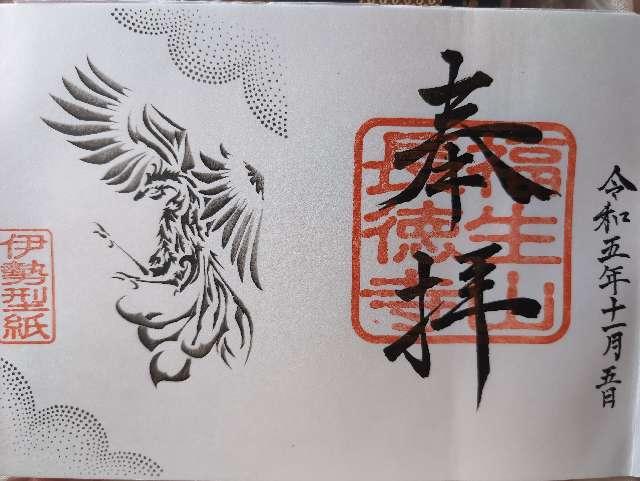 令和五年十一月五日
奉拝
福生山
長徳寺
伊勢型紙